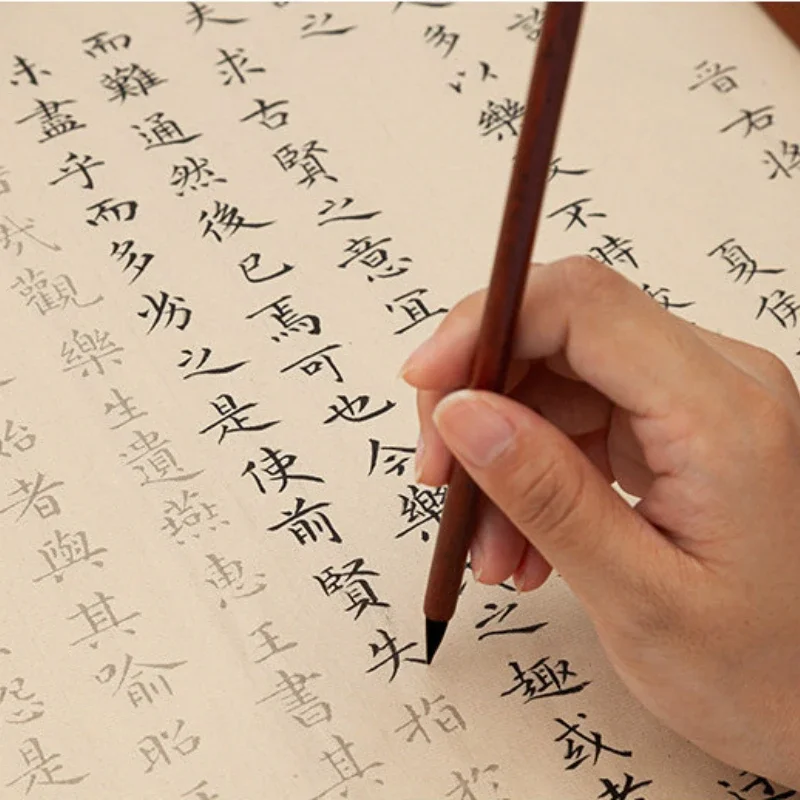 晉右將
夏侯
多以樂
不時
之
夫求古賢之意宜
而難通然後已焉可也今樂
之趣或者
未盡乎而多劣之是使前賢失指於
哉觀樂生遺燕惠王書其
始者與其喻昭王
怨是